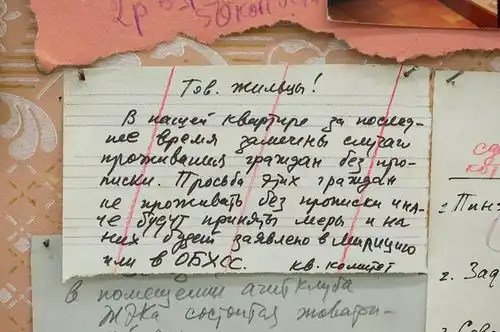 2р 50 коп
Тов. жильцы!
В нашей квартире за послед-
нее время замечены случаи
проживания граждан без про-
писки. Просьба этих граждан
не проживать без прописки ина-
че будут приняты меры и на
них будет заявлено в милицию
или в ОБХСС. кв. комитет
в помещении агитклуба
ЖЭКа состоится товари-
2. Зад